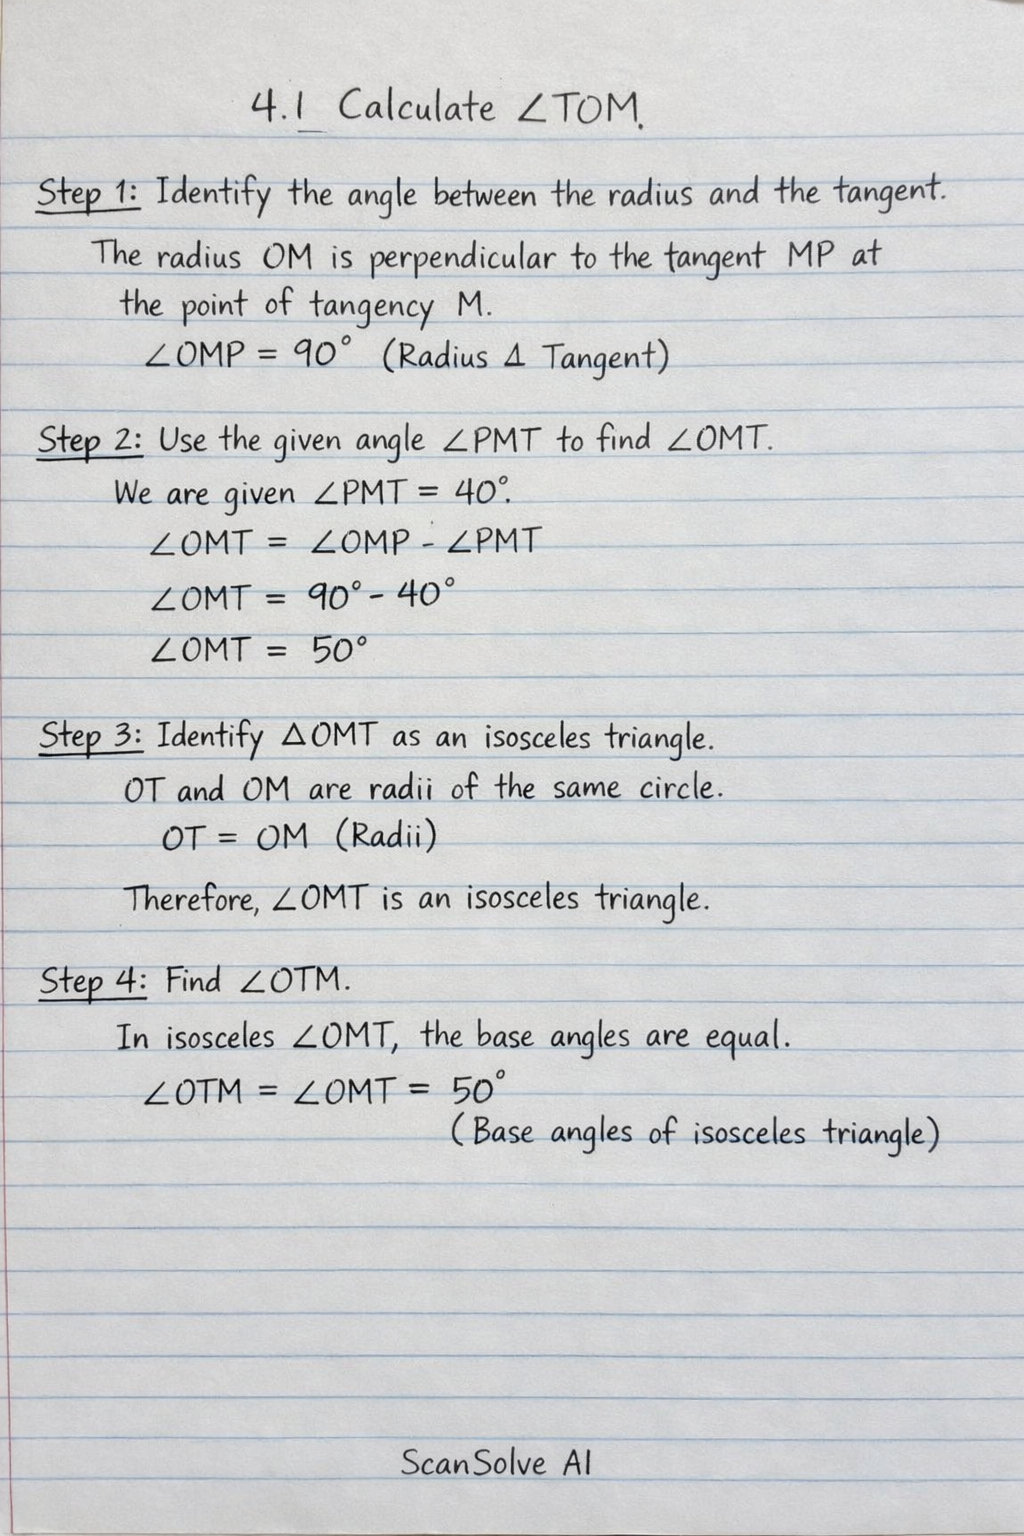 4.1 Calculate ∠TOM.
Step 1: Identify the angle between the radius and the tangent.
The radius OM is perpendicular to the tangent MP at
the point of tangency M.
∠OMP = 90° (Radius Δ Tangent)
Step 2: Use the given angle ∠PMT to find ∠OMT.
We are given ∠PMT = 40°.
∠OMT = ∠OMP - ∠PMT
∠OMT = 90° - 40°
∠OMT = 50°
Step 3: Identify ΔOMT as an isosceles triangle.
OT and OM are radii of the same circle.
OT = OM (Radii)
Therefore, ∠OMT is an isosceles triangle.
Step 4: Find ∠OTM.
In isosceles ∠OMT, the base angles are equal.
∠OTM = ∠OMT = 50°
(Base angles of isosceles triangle)
ScanSolve AI